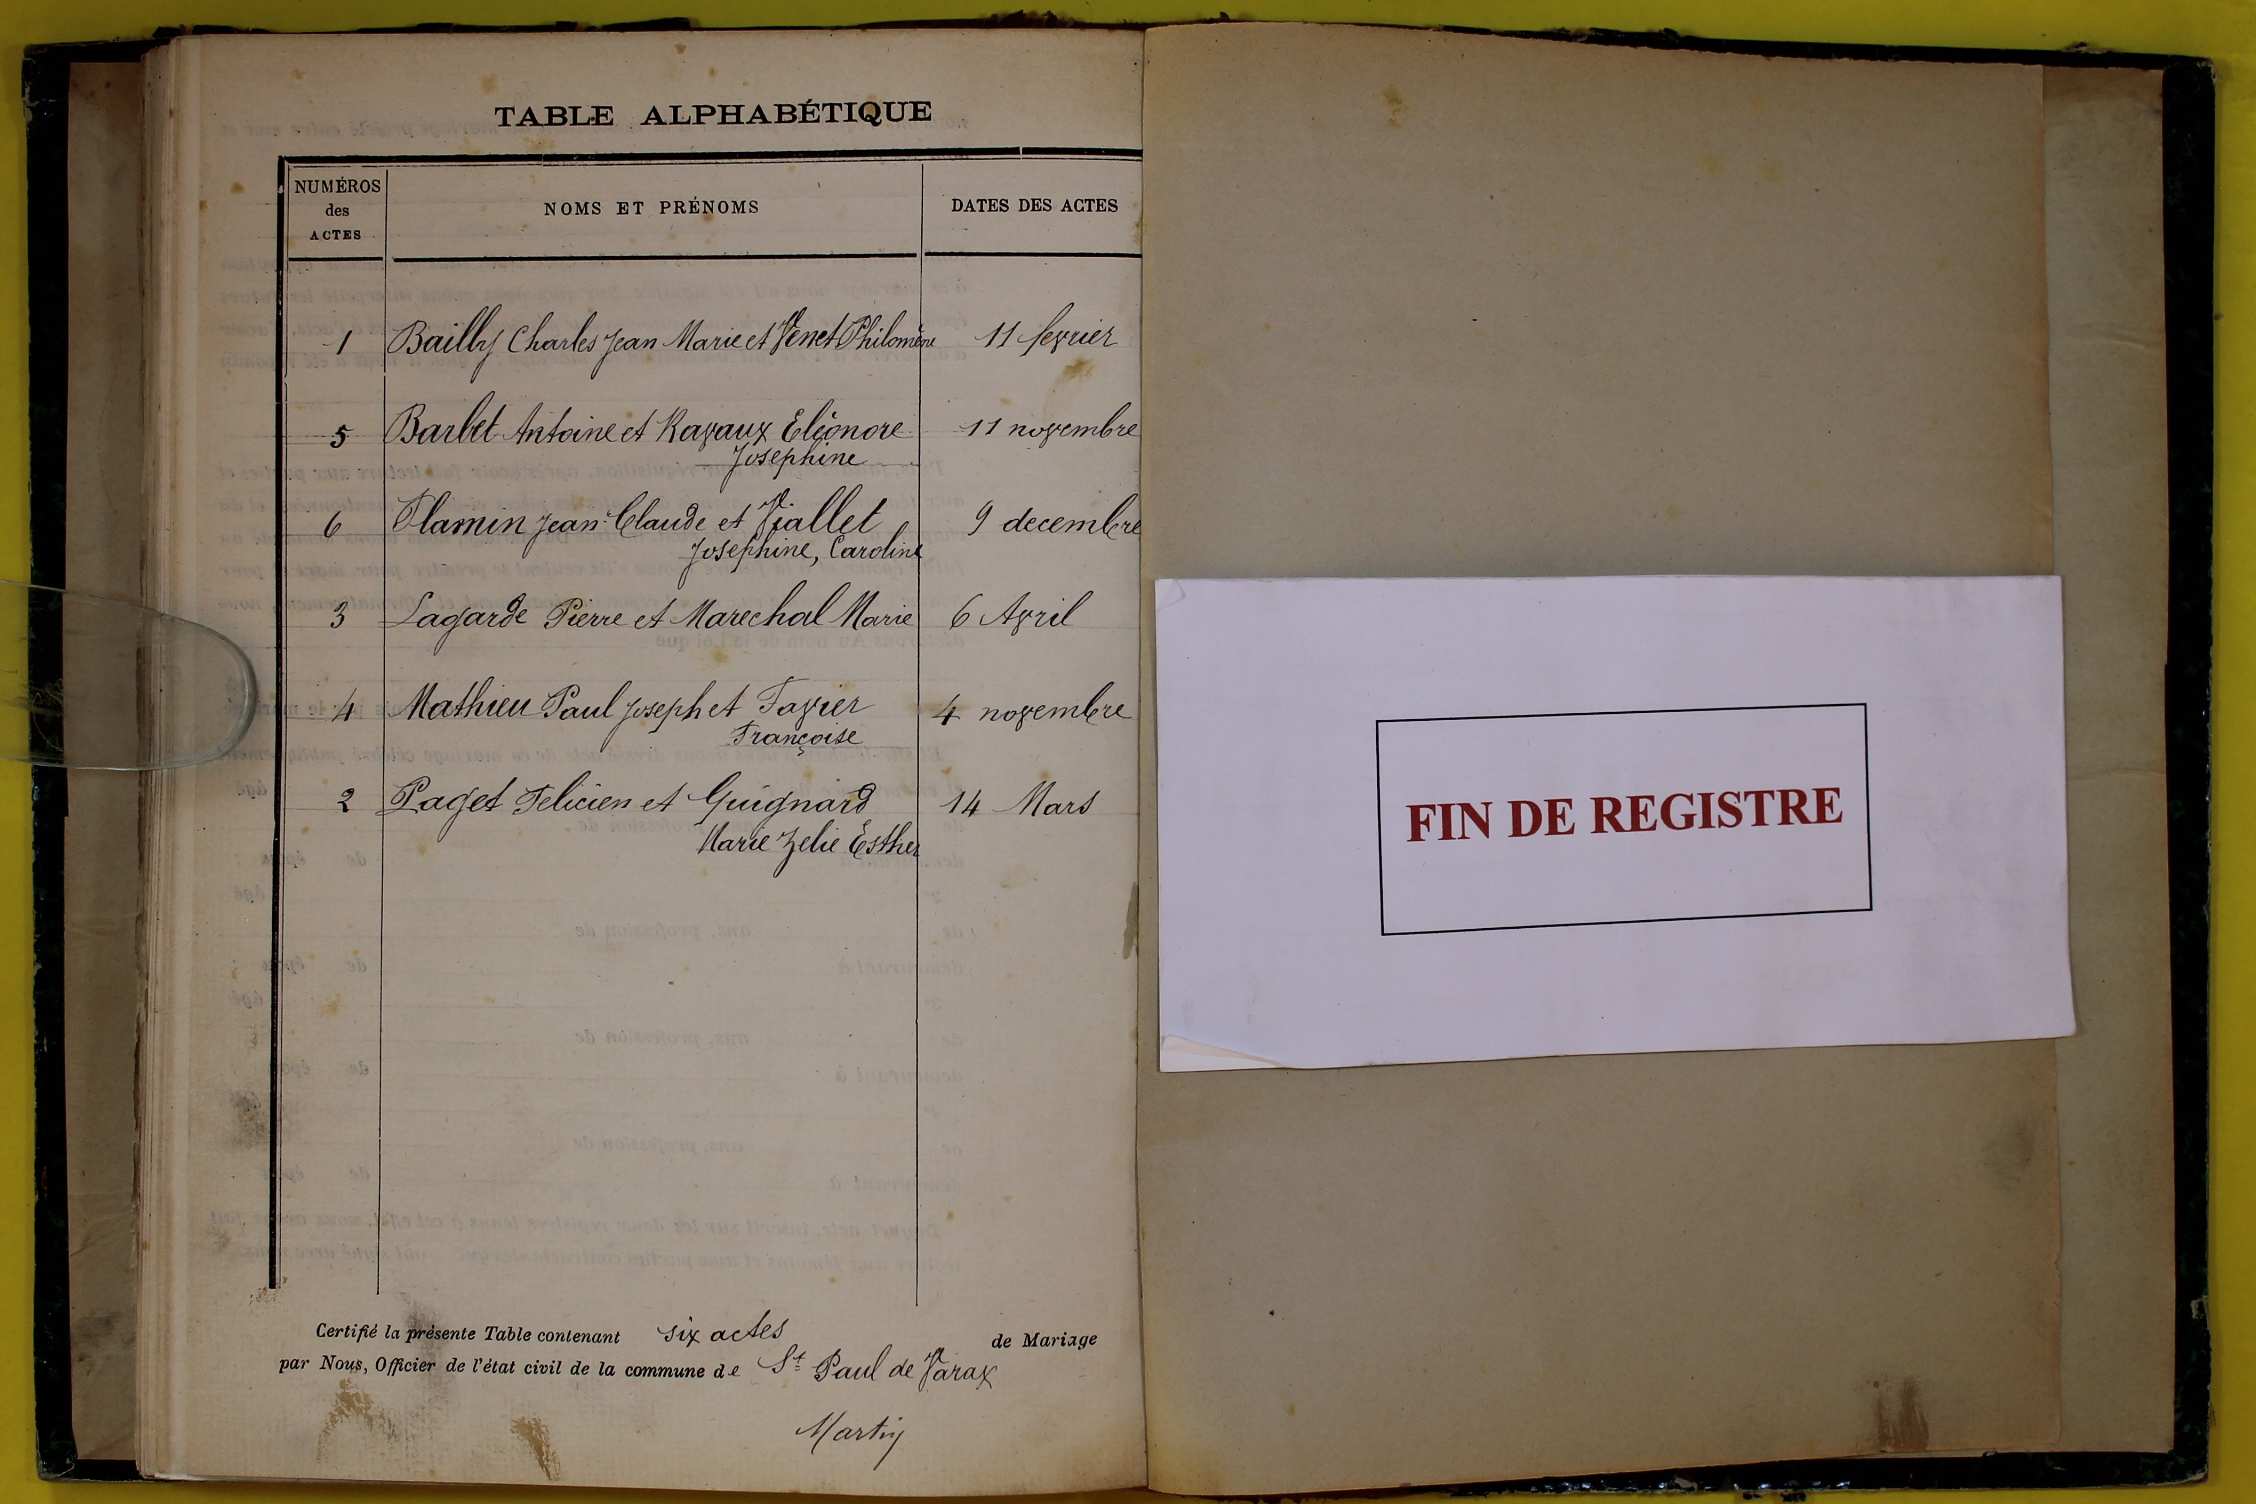 TABLE ALPHABÉTIQUE
NUMÉROS
des
ACTES
NOMS ET PRÉNOMS
DATES DES ACTES
1 Bailly Charles Jean Marie et Venet Philomène 11 fevrier
5 Barbet Antoine et Ravaux Eléonore 11 novembre
Josephine
6 Flamin Jean-Claude et Viallet 9 decembre
Josephine, Caroline
3 Lagarde Pierre et Marechal Marie 6 Avril
4 Mathieu Paul Joseph et Favier 4 novembre
Françoise
2 Paget Felicien et Guignard 14 Mars
Marie Zelie Esther
Certifié la présente Table contenant six actes de Mariage
par Nous, Officier de l'état civil de la commune de St Paul de Varax
Martin
FIN DE REGISTRE